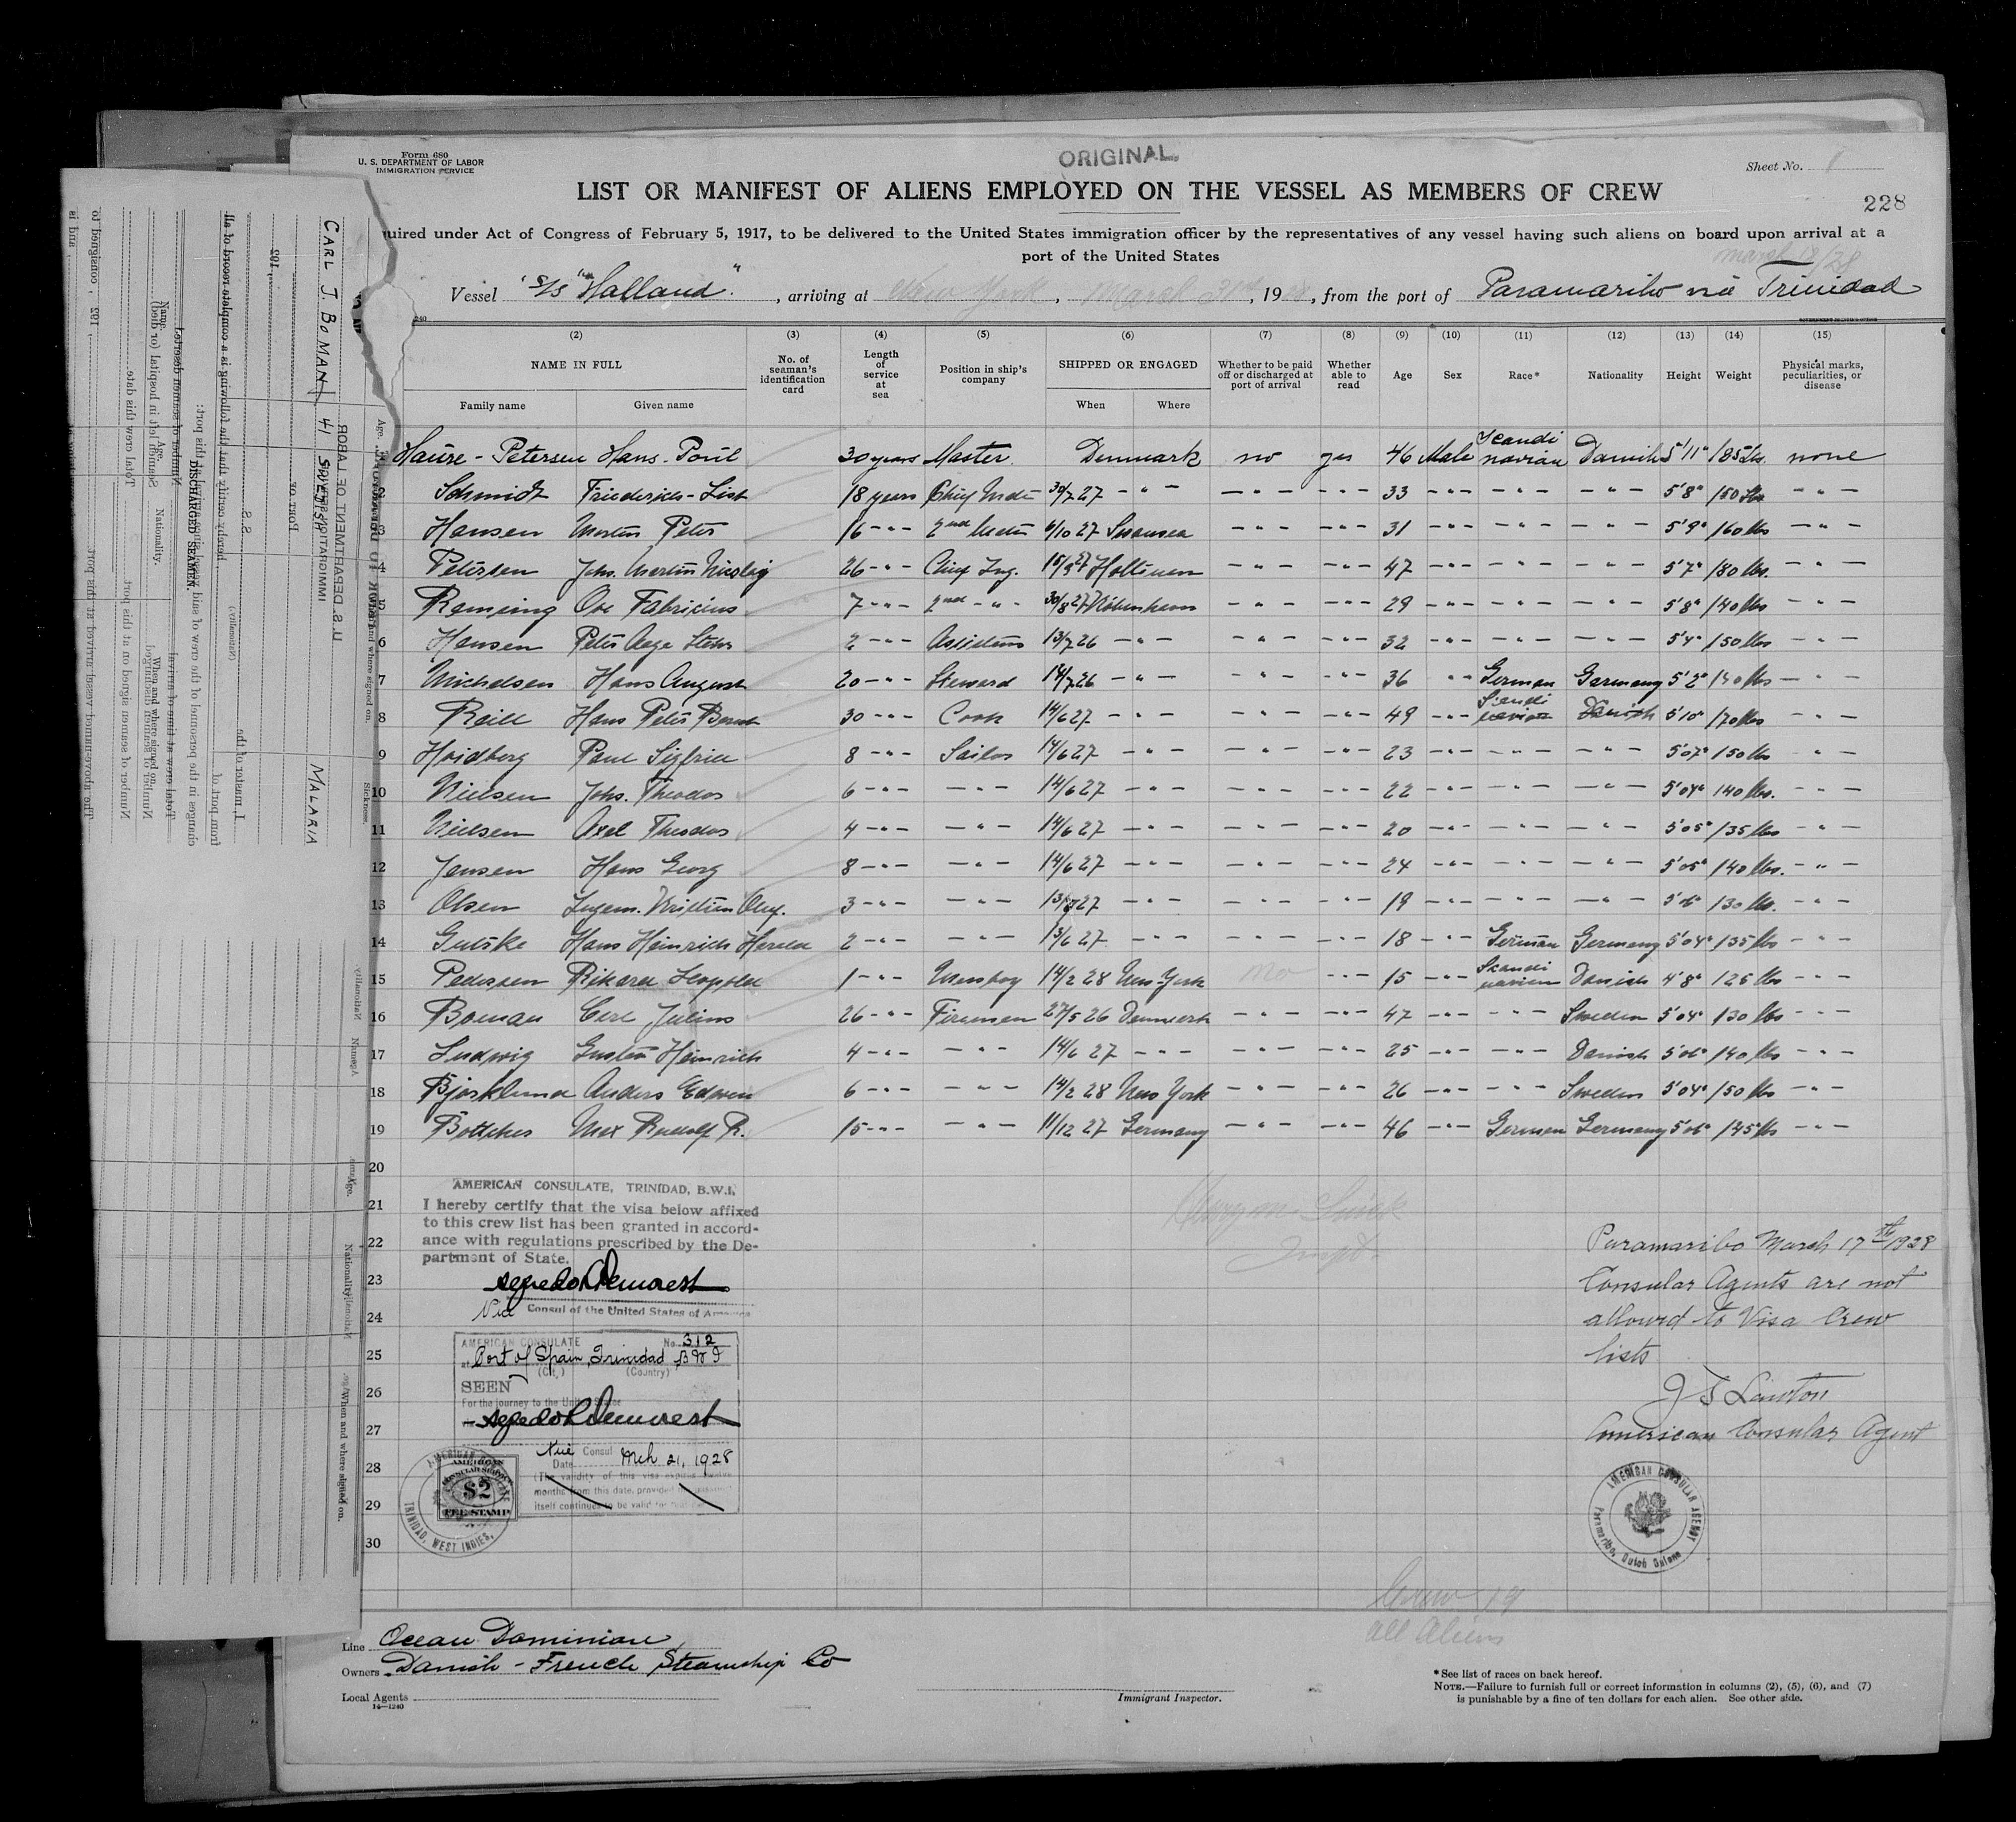 Form 680
U. S. DEPARTMENT OF LABOR
IMMIGRATION SERVICE
ORIGINAL
Sheet No. 1
LIST OR MANIFEST OF ALIENS EMPLOYED ON THE VESSEL AS MEMBERS OF CREW
228
uired under Act of Congress of February 5, 1917, to be delivered to the United States immigration officer by the representatives of any vessel having such aliens on board upon arrival at a
port of the United States
Vessel S/S "Halland", arriving at New York, March 31st, 19 28, from the port of Paramaribo via Trinidad
(2) (3) (4) (5) (6) (7) (8) (9) (10) (11) (12) (13) (14) (15)
NAME IN FULL
Family name Given name
No. of seaman's identification card
Length of service at sea
Position in ship's company
SHIPPED OR ENGAGED
When Where
Whether to be paid off or discharged at port of arrival
Whether able to read
Age Sex Race* Nationality Height Weight
Physical marks, peculiarities, or disease
Haure-Petersen Hans-Poul 30 years Master Denmark no yes 46 Male Scandinavian Danish 5'11" 185 lbs. none
2 Schmidt Friederich-List 18 years Chief Mate 30/7 27 -"- -"- -"- 33 -"- -"- -"- 5'8" 150 lbs -"-
3 Hansen Morten Peter 16 -"- 2nd Mate 6/10 27 Swansea -"- -"- 31 5'9" 160 lbs -"-
4 Petersen Johs. Martin Nicolaj 26 -"- Chief Ing. 15/3 27 Holtenau -"- -"- 47 -"- -"- -"- 5'7" 180 lbs. -"-
5 Remming Ove Fabricius 7 -"- 2nd -"- 30/8 27 Köbenhavn -"- -"- 29 -"- -"- -"- 5'8" 140 lbs -"-
6 Hansen Peter Aage 2 -"- 13/7 26 -"- -"- -"- 32 -"- -"- -"- 5'4" 150 lbs -"-
7 Michelsen Hans August 20 -"- Steward 14/7 26 -"- -"- -"- 36 -"- German Germany 5'2" 140 lbs -"-
8 Hans Peter 30 -"- Cook 14/6 27 -"- -"- -"- 49 -"- Scandinavian Danish 5'10" 170 lbs -"-
9 Hvidberg Paul Sigfried 8 -"- Sailor 14/6 27 -"- -"- -"- 23 -"- -"- -"- 5'07" 150 lbs -"-
10 Nielsen Johs. Theodor 6 -"- -"- 14/6 27 -"- -"- -"- 22 -"- -"- -"- 5'04" 140 lbs. -"-
11 Nielsen Axel Theodor 4 -"- -"- 14/6 27 -"- -"- -"- 20 -"- -"- -"- 5'05" 135 lbs -"-
12 Jensen Hans Georg 8 -"- -"- 14/6 27 -"- -"- -"- 24 -"- -"- -"- 5'05" 140 lbs. -"-
13 Olsen Ingem. Kristian 3 -"- -"- 27 -"- -"- -"- 19 -"- -"- -"- 5'6" 130 lbs. -"-
14 Gutske Hans Heinrich Harald 2 -"- -"- 13/6 27 -"- -"- -"- 18 -"- German Germany 5'04" 135 lbs -"-
15 Pedersen Rikard Leopold 1 -"- Messboy 14/2 28 New-York no -"- 15 -"- Scandinavian Danish 4'8" 126 lbs -"-
16 Boman Carl Julius 26 -"- Fireman 27/5 26 Denmark -"- -"- 47 -"- -"- Sweden 5'04" 130 lbs -"-
17 Ludwig Gustav Heinrich 4 -"- -"- 14/6 27 -"- -"- -"- 25 -"- -"- Danish 5'06" 140 lbs -"-
18 Bjorklund Anders Edwin 6 -"- -"- 14/2 28 New York -"- -"- 26 -"- -"- Sweden 5'04" 150 lbs -"-
19 Böttcher Max Rudolf R. 15 -"- -"- 11/12 27 Germany -"- -"- 46 -"- German Germany 5'06" 145 lbs -"-
20
21
22
23
24
25
26
27
28
29
30
AMERICAN CONSULATE, TRINIDAD, B.W.I.
I hereby certify that the visa below affixed
to this crew list has been granted in accord-
ance with regulations prescribed by the De-
partment of State.
Alfredo L Demorest
Vice Consul of the United States of America
AMERICAN CONSULATE No. 312
at Port of Spain, Trinidad B W I
(City) (Country)
SEEN
For the journey to the United States
Alfredo L Demorest
Vice Consul
Date Mch 21, 1928
(The validity of this visa expires twelve
months from this date, provided the passport
itself continues to be valid for that period)
AMERICAN CONSULAR SERVICE
$2
FEE STAMP
TRINIDAD, WEST INDIES.
Paramaribo March 17th 1928
Consular Agents are not
allowed to Visa Crew
lists
J S Lawton
American Consular Agent
AMERICAN CONSULAR AGENCY
Paramaribo, Dutch Guiana
Crew 19
all Aliens
Line Ocean Dominion
Owners Danish-French Steamship Co
Local Agents
14—1240
Immigrant Inspector.
*See list of races on back hereof.
NOTE.—Failure to furnish full or correct information in columns (2), (5), (6), and (7)
is punishable by a fine of ten dollars for each alien. See other side.
CARL J. BOMAN 41 SWEDISH MALARIA
U.S. DEPARTMENT OF LABOR
IMMIGRATION SERVICE
Port of
, 192
S.S.
I, master of the
hereby certify that the following is a complete record of all
changes in the personnel of the crew of said vessel since time of arrival at this port:
DISCHARGED SEAMEN.
Age. Sickness.
Name. Age. Nationality. When and where signed on.